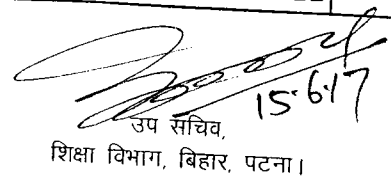 15.6.17
उप सचिव,
शिक्षा विभाग, बिहार, पटना।